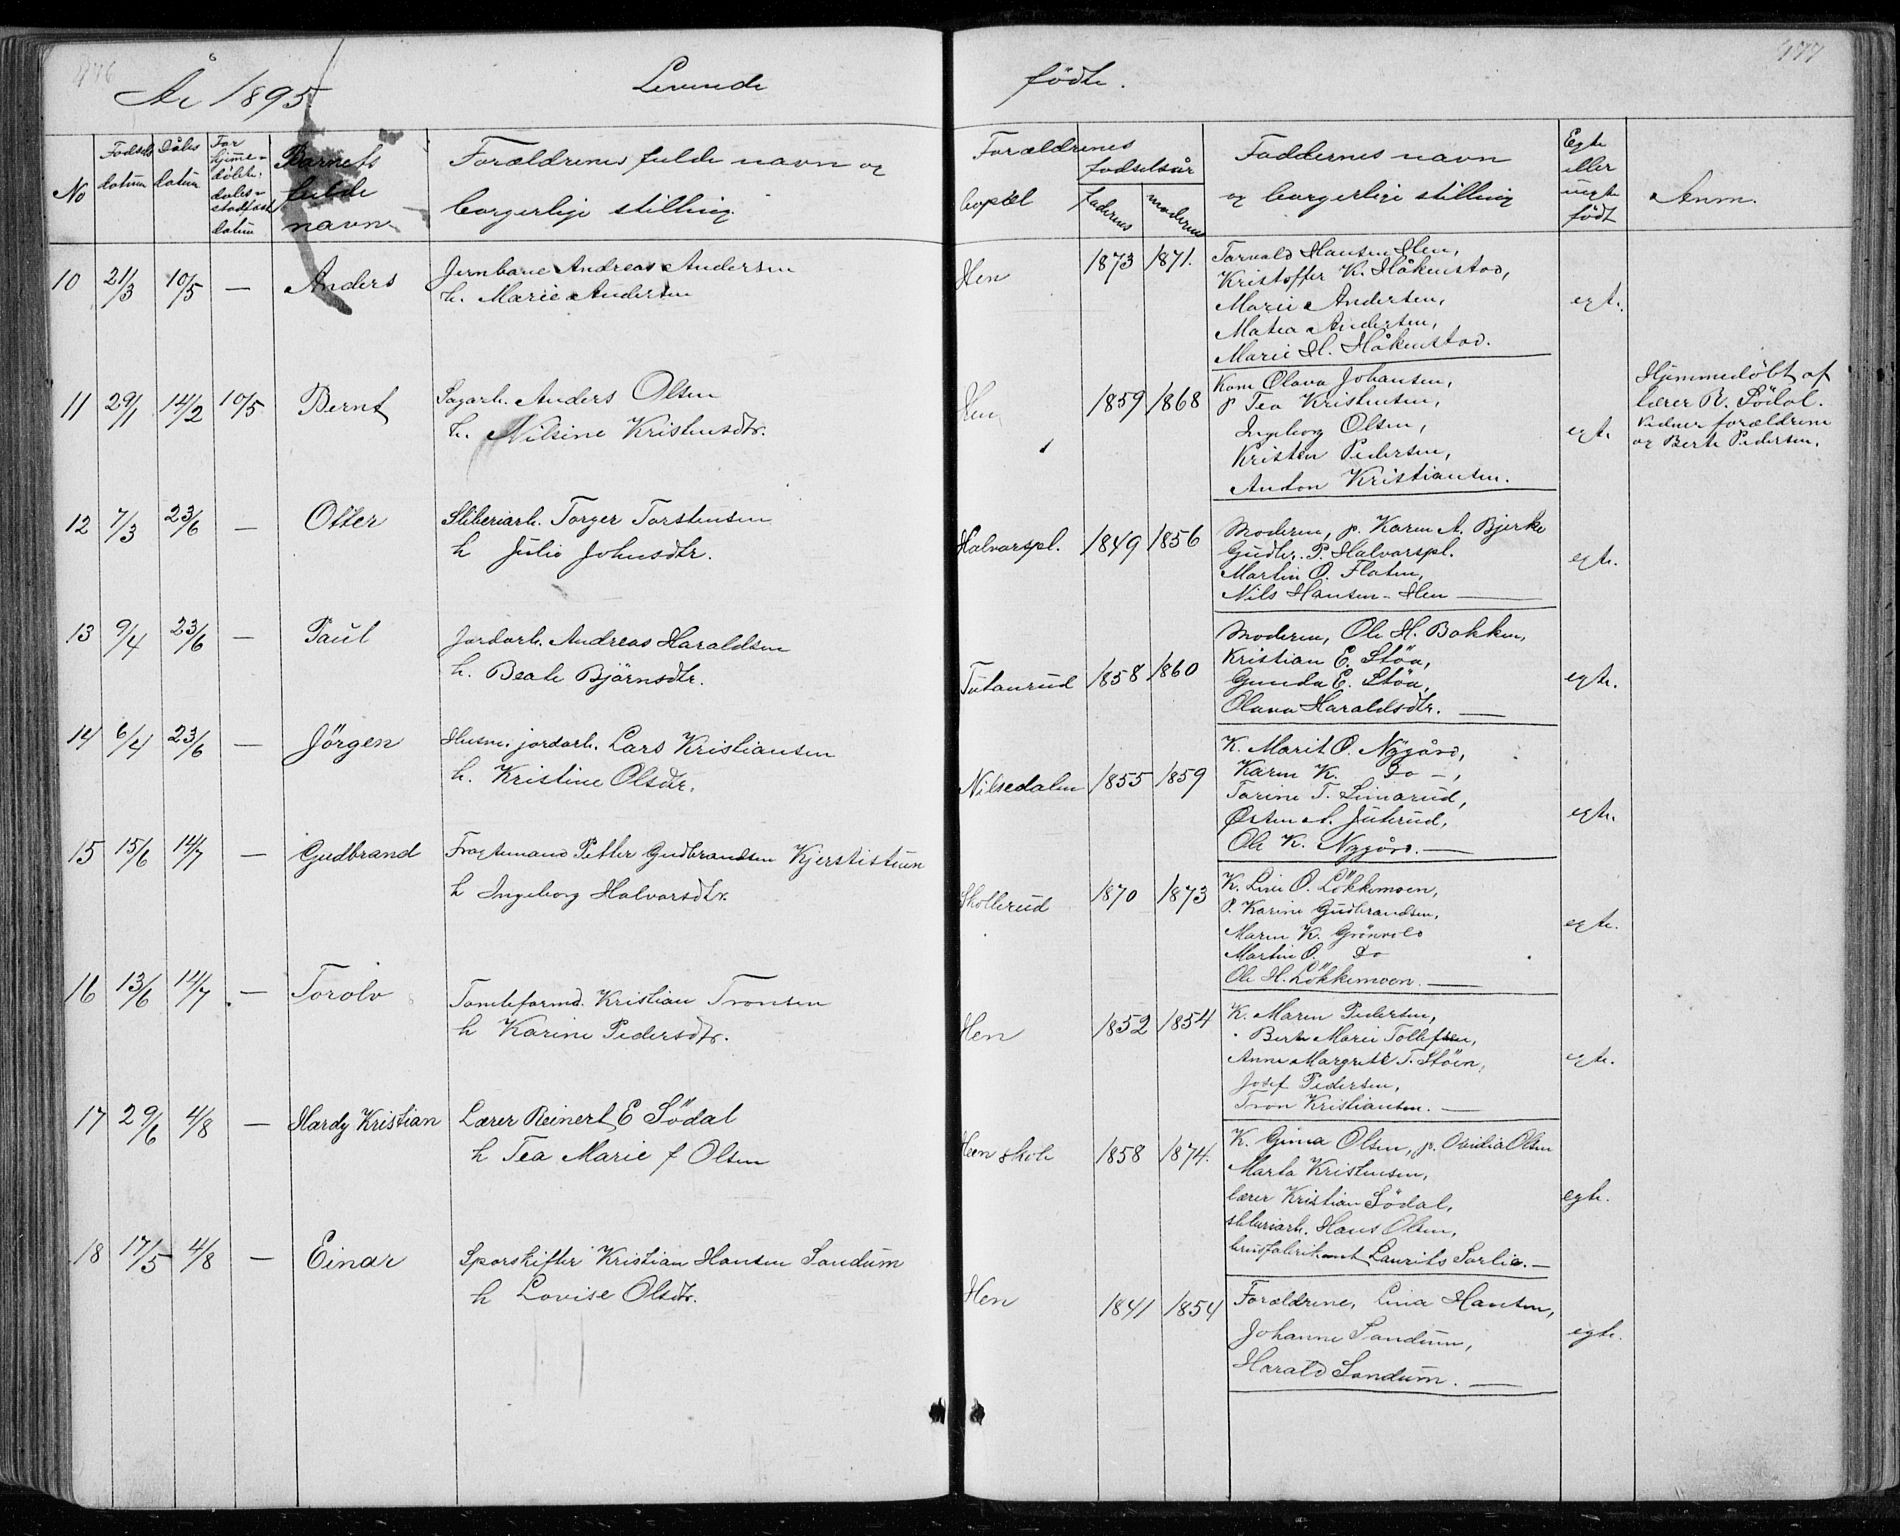 476
År 1895.
Levende
No
Fødsels datum
Dåbs datum
For hjemmedøbte: dåbs-stadfæst. datum
Barnets fulde navn
Forældrenes fulde navn og borgerlige stilling.
10 21/3 10/5 — Anders Jernbane Andreas Andersen
h. Marie Andersen
11 29/1 14/2 10/5 Bernt Sagarb. Anders Olsen
h. Nilsine Kristensdtr.
12 7/3 23/6 — Otter Sliberiarb. Torger Torstensen
h Julie Johnsdtr.
13 9/4 23/6 — Paul Jordarb. Andreas Haraldsen
h. Beate Björnsdtr.
14 6/4 23/6 — Jörgen Husm. jordarb. Lars Kristiansen
h. Kristine Olsdtr.
15 15/6 14/7 — Gudbrand Fragtemand Petter Gudbrandsen Kjerstistuen
h Ingeborg Halvorsdtr.
16 13/6 14/7 — Torolv Tomteformd. Kristian Tronsen
h Karine Pedersdtr.
17 29/6 4/8 — Hardy Kristian Lærer Reinert E Södal
h Tea Marie f Olsen
18 17/5 4/8 — Einar Sporskifter Kristian Hansen Sandum
h Lovise Olsdtr.
477
fødte.
Forældrenes
bopæl
fødselsår
faderens
moderens
Faddernes navn
og borgerlige stilling
Egte eller uegte født
Anm.
Hen 1873 1871. Torvald Hansen Hen,
Kristoffer K. Håkenstad,
Marie Andersen,
Matea Andersen,
Marie H. Håkenstad.
egt.
Hen 1859 1868 Kone Olava Johansen,
p Tea Kristensen,
Ingeborg Olsen,
Kristen Pedersen,
Anton Kristiansen.
egt.
Hjemmedøbt af
lærer R. Södal.
Vidner forældrene
og Berte Pedersen.
Halvorspl. 1849 1856 Moderen, p. Karen A. Bjerke
Gudbr. P. Halvorspl.
Martin O. Flaten,
Nils Hansen - Hen —
egte.
Tutanrud 1858 1860 Moderen, Ole H. Bakken,
Kristian E. Stöa,
Gunda E. Stöa,
Olava Haraldsdtr. —
egte.
Nilsedalen 1855 1859 K. Marit O. Nygård,
Karen K. Do —,
Torine T. Simarud,
Østen A. Juterud,
Ole K. Nygård. —
egte.
Skollerud 1870 1873 K. Live O. Lökkemoen,
P. Karine Gudbrandsen,
Maren K. Grönvold
Martin O. Do
Ole H. Lökkemoen. —
egte.
Hen 1852 1854 K. Maren Pedersen,
Berte Marie Tollefsen,
Anne Margrete T. Stöen,
Josef Pedersen,
Tron Kristiansen. —
egte.
Heen skole 1858 1874. K. Gina Olsen, p. Ovidia Olsen
Marta Kristensen,
lærer Kristian Södal,
sliberiarb. Hans Olsen,
brusfabrikant Laurits Sørlie. —
egte.
Hen 1841 1854 Forældrene, Lina Hansen,
Johanne Sandum,
Harald Sandum. —
egte.